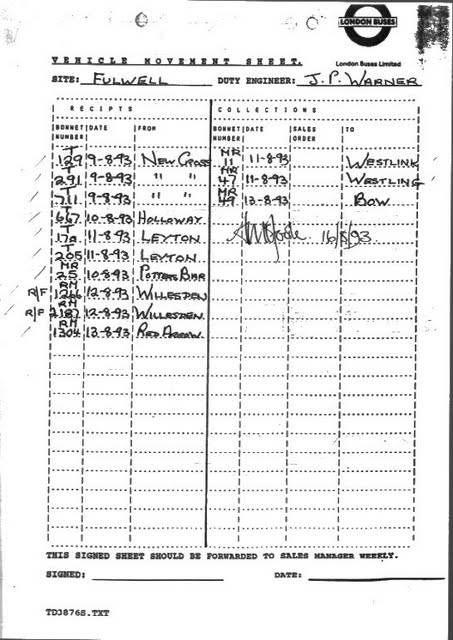 LONDON BUSES
VEHICLE MOVEMENT SHEET.
London Buses Limited
SITE: FULWELL DUTY ENGINEER: J.P. WARNER
RECEIPTS COLLECTIONS
BONNET NUMBER DATE FROM BONNET NUMBER DATE SALES ORDER TO
T 129 9-8-93 NEW CROSS MR 11 11-8-93 WESTLINK
T 291 9-8-93 " " MR 47 11-8-93 WESTLINK
T 711 9-8-93 " " MR 49 13-8-93 BOW
T 667 10-8-93 HOLLOWAY
T 170 11-8-93 LEYTON 16/8/93
T 205 11-8-93 LEYTON
MR 25 10-8-93 POTTERS BAR
R/F RM 1266 12-8-93 WILLESDEN
R/F RM 2187 12-8-93 WILLESDEN
RM 1304 13-8-93 RED ARROW
THIS SIGNED SHEET SHOULD BE FORWARDED TO SALES MANAGER WEEKLY.
SIGNED: DATE:
TDJ876S.TXT